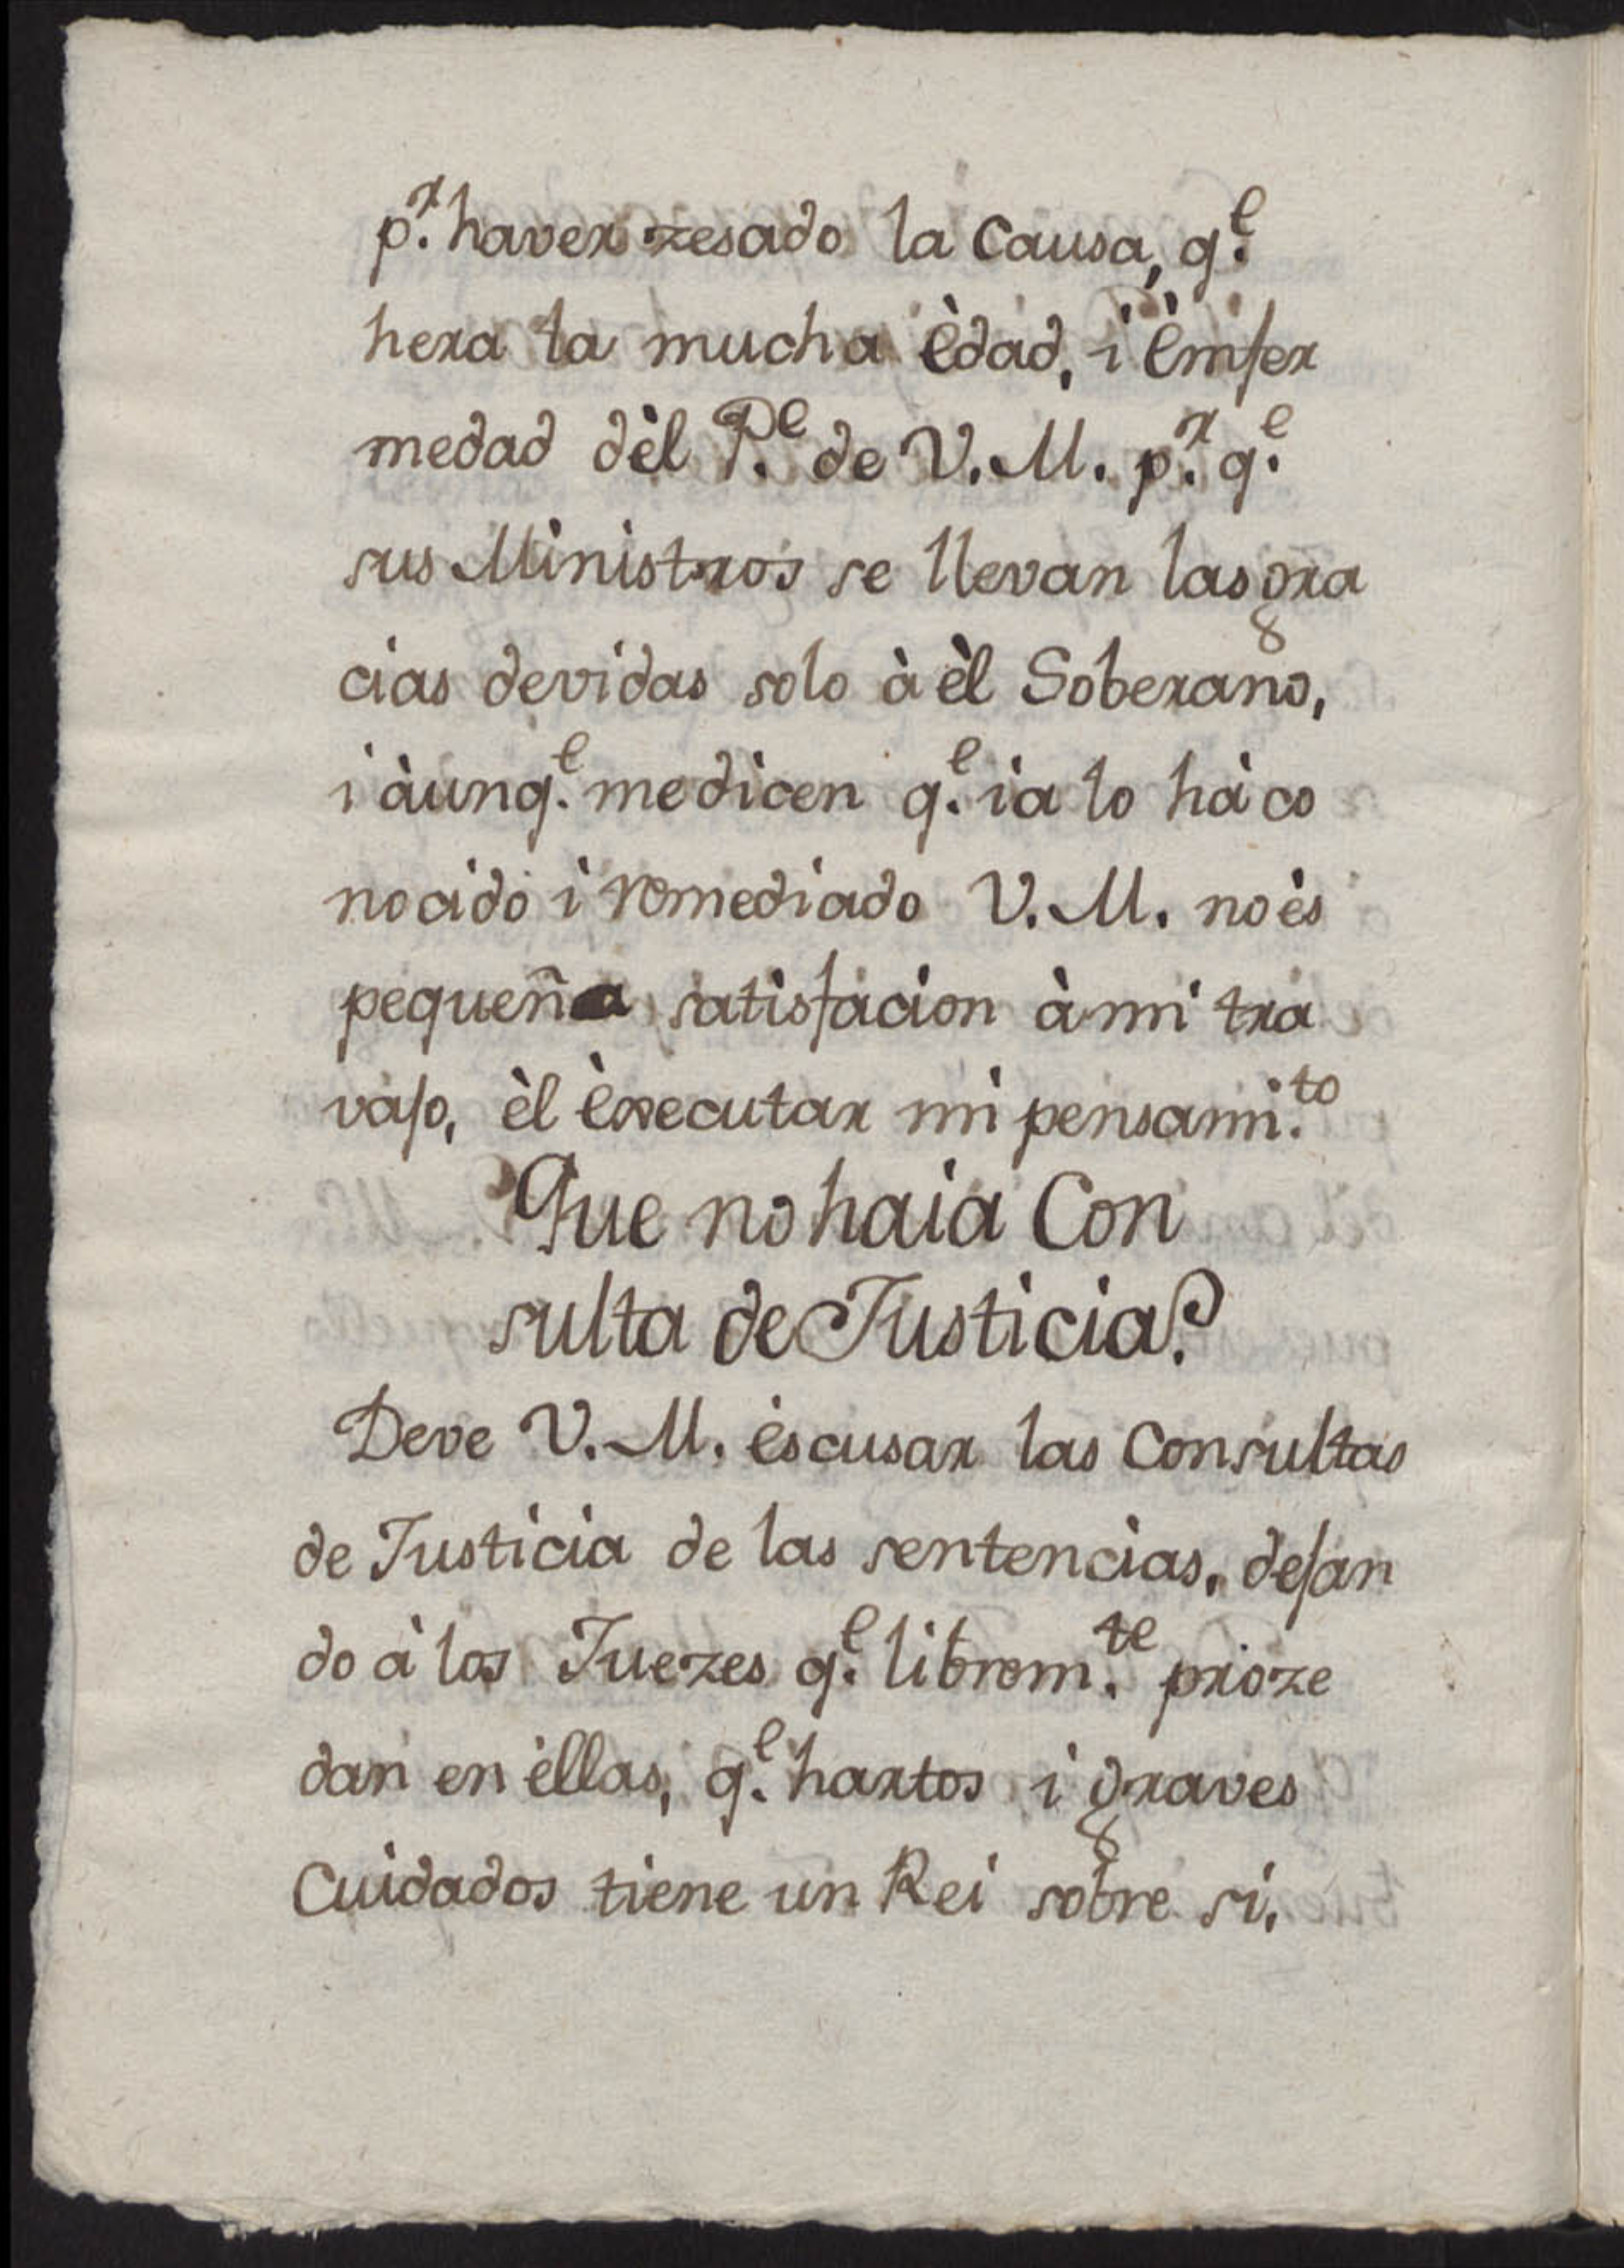 p.r haver zesado la Causa, q.e
hera la mucha èdad, i èmfer
medad dèl P.e de V. M. p.r q.e
sus Ministros se llevan las gra
cias devidas solo à èl Soberano,
i àunq.e me dicen q.e ia lo hà co
nocido i remediado V. M. no ès
pequeña satisfacion à mi tra
vajo, èl èxecutar mi pensami.to
Que no haia Con
sulta de Justicia?
Deve V. M. èscusar las Consultas
de Justicia de las sentencias, dejan
do à los Juezes q.e librem.te proze
dan en èllas, q.e hartos i graves
Cuidados tiene un Rei sobre si,